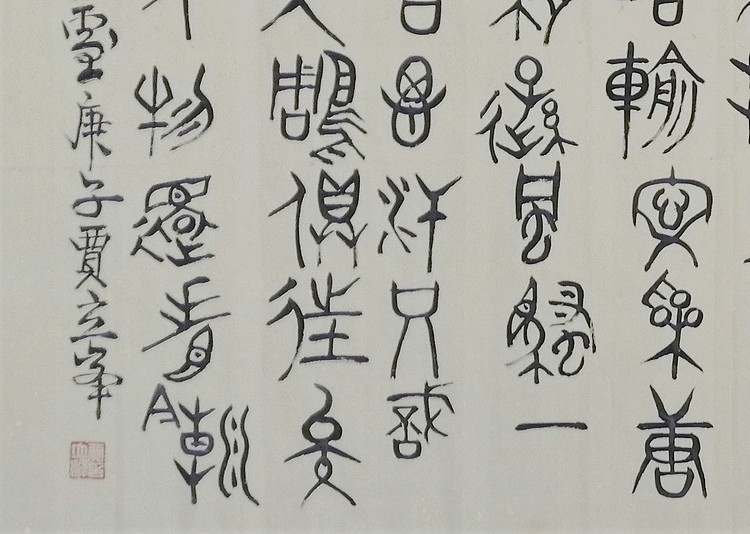 輸文采唐
稍遜風騷一
吉思汗只識
大鵰俱往矣
物還看今朝
雪庚子賈立